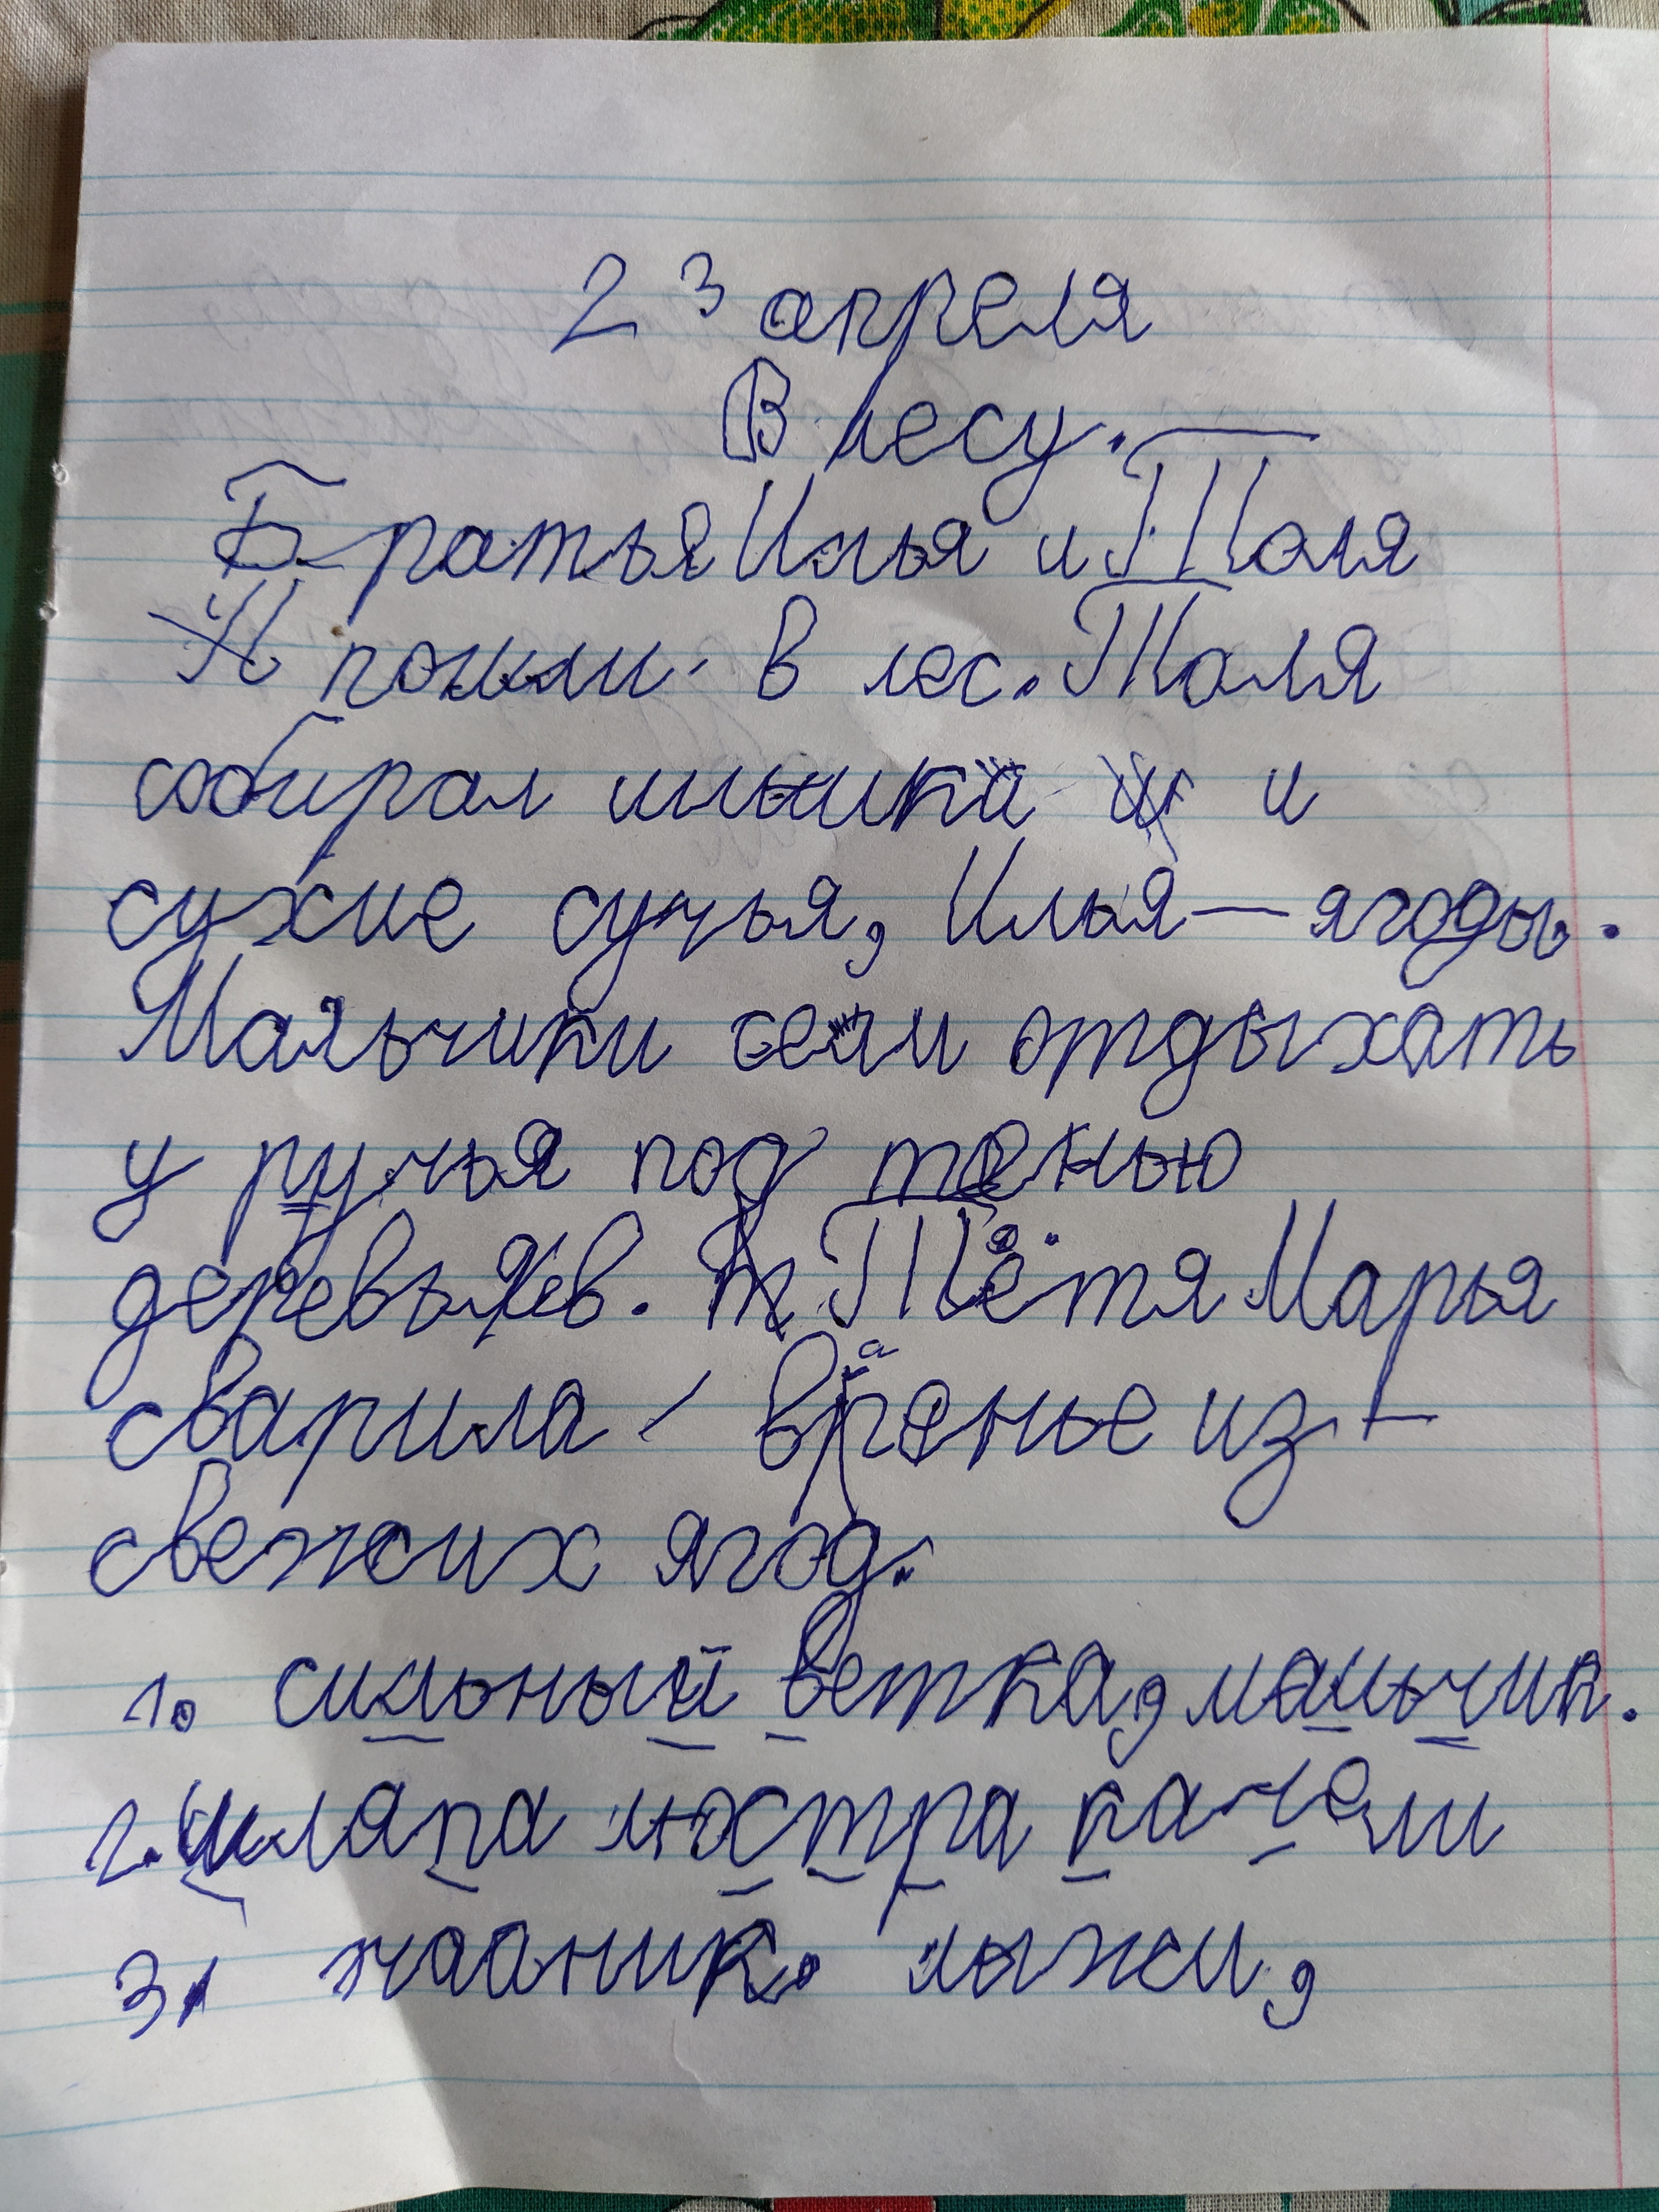 23 апреля
В лесу.
Братья Илья и Толя
пошли в лес. Толя
собирал шышки и
сухие сучья, Илья — ягоды.
Мальчики сели отдыхать
у ручья под тенью
деревьев. Тётя Марья
сварила варенье из
свежих ягод.
1. сильный ветка, мальчик.
2. шляпа люстра качели
3. чайник. лыжи,